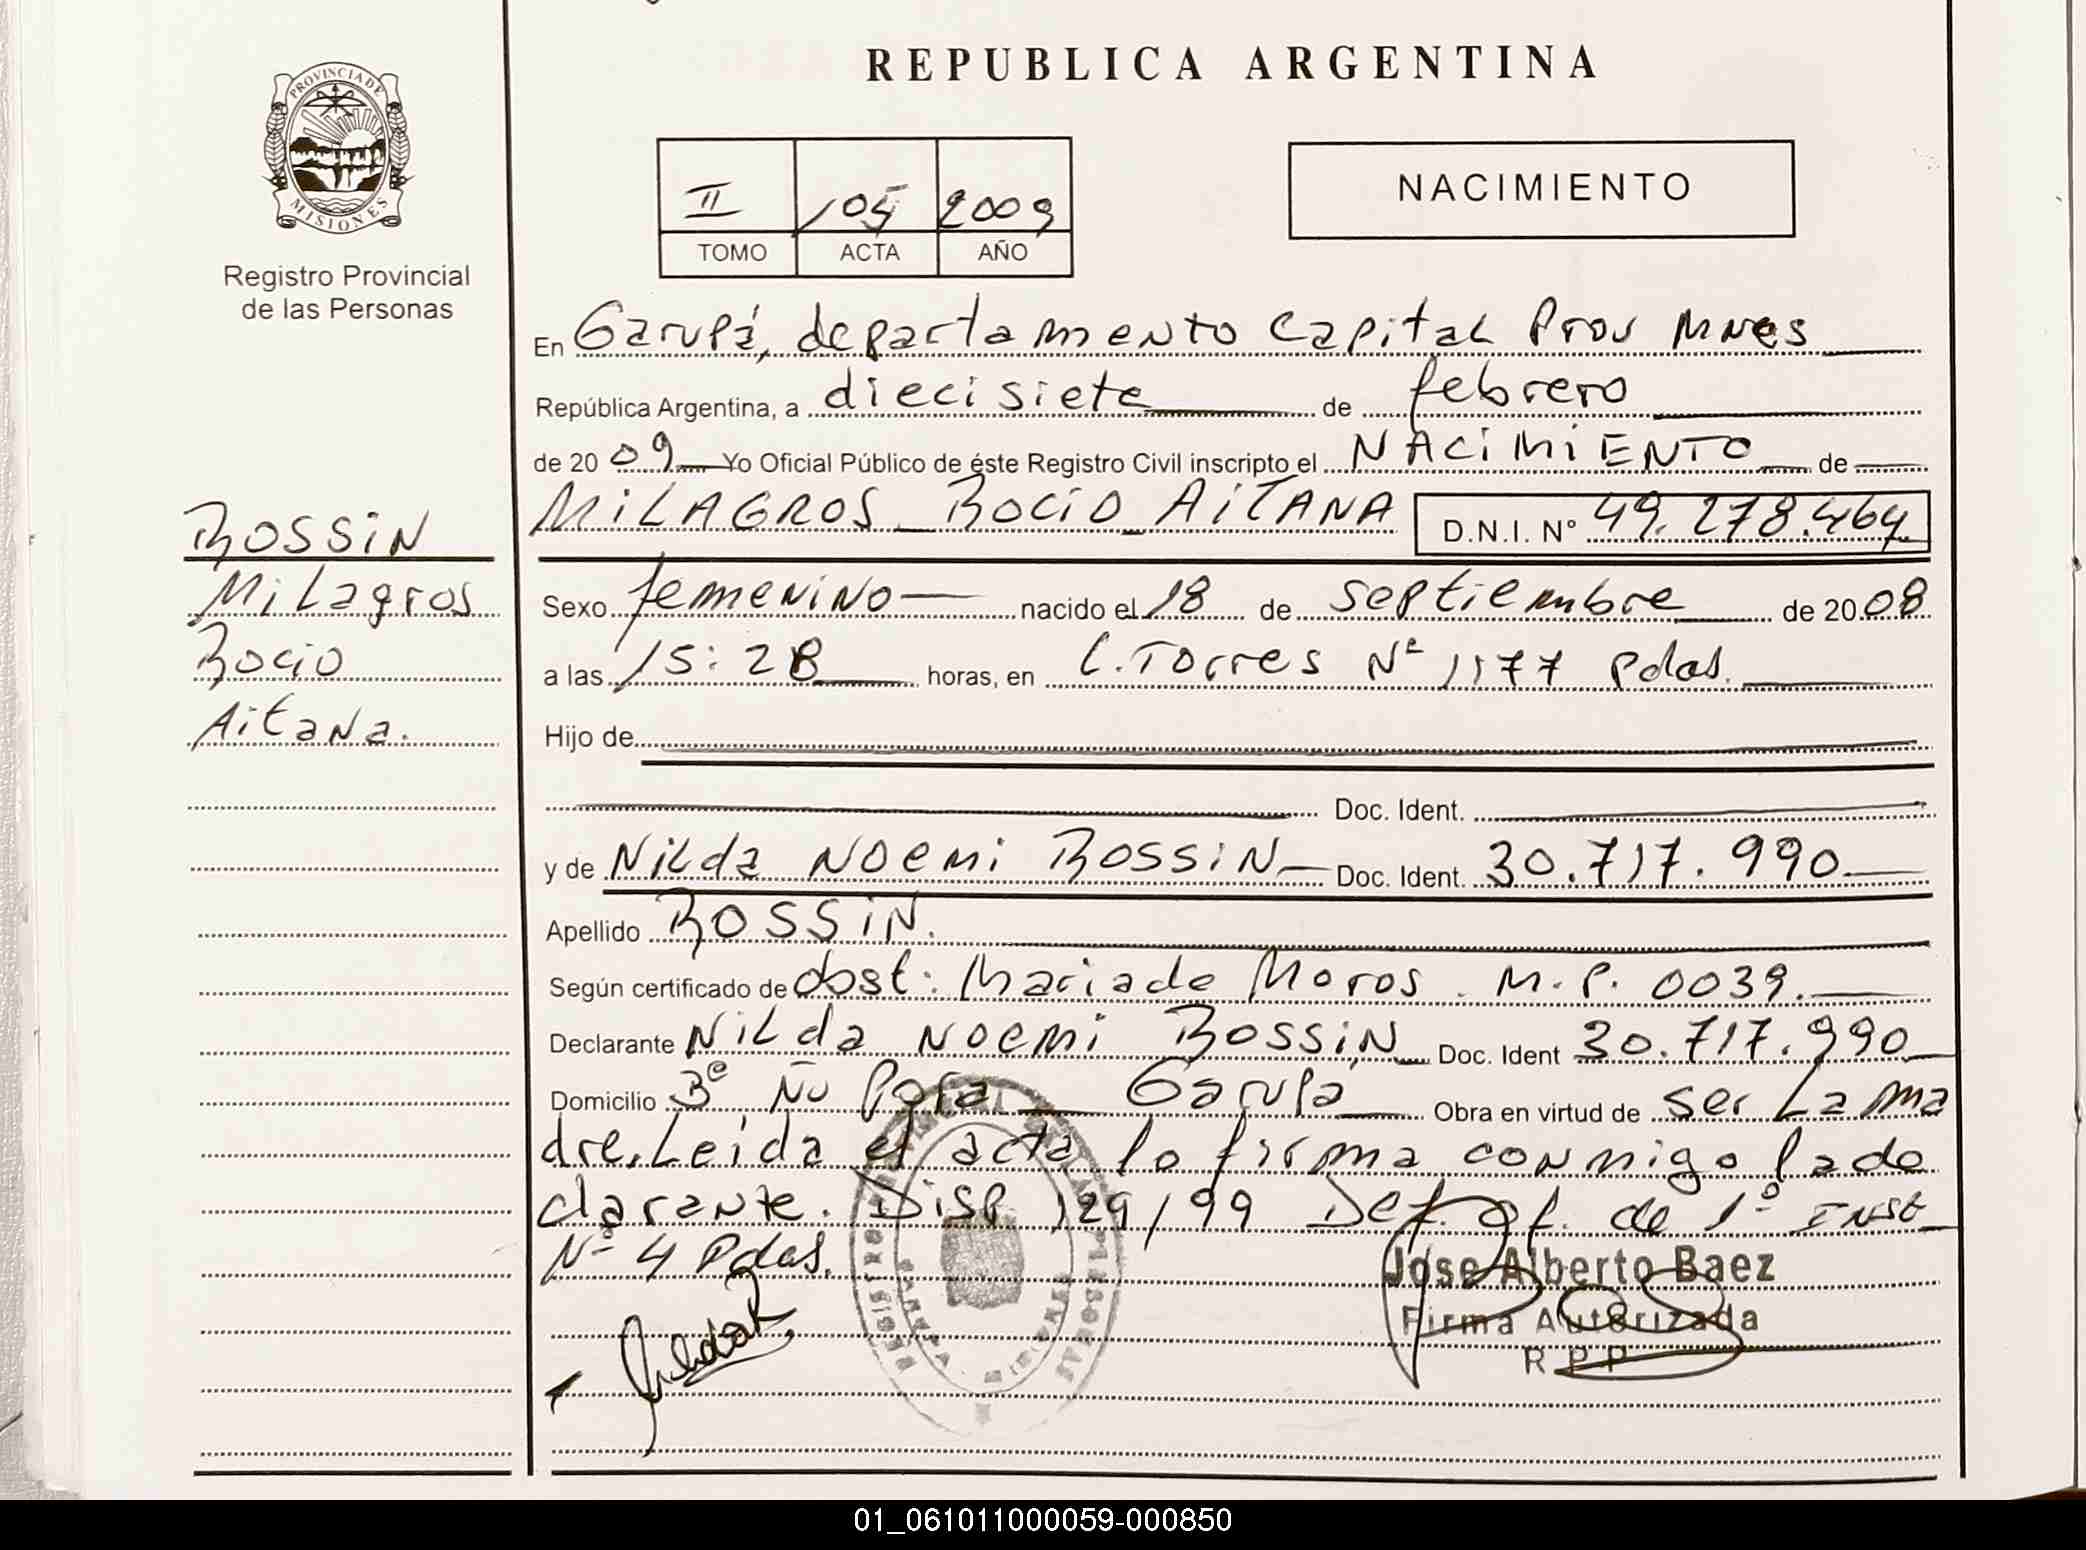 REPUBLICA ARGENTINA
PROVINCIA DE
MISIONES
Registro Provincial
de las Personas
II 105 2009
TOMO ACTA AÑO
NACIMIENTO
En Garupá, departamento Capital Prov Mnes
República Argentina, a diecisiete de febrero
de 2009 Yo Oficial Público de éste Registro Civil inscripto el NACIMIENTO de
MILAGROS ROCIO AITANA D.N.I. Nº 49.278.464
ROSSIN
Milagros
Rocio
Aitana.
Sexo femenino nacido el 18 de septiembre de 2008
a las 15:28 horas, en C. Torres Nº 1177 Pdas.
Hijo de
Doc. Ident.
y de Nilda Noemi Rossin Doc. Ident. 30.717.990
Apellido ROSSIN.
Según certificado de obst: Maciade Moros. M.P. 0039.
Declarante Nilda Noemi Rossin Doc. Ident 30.717.990
Domicilio Bº Ñu Pora Garupa Obra en virtud de ser la ma
dre. Leida el acta lo firma conmigo la de
clarante. Disp. 129/99 Def. of. de 1º Inst
Nº 4 Pdas.
Jose Alberto Baez
Firma Autorizada
R P P
01_061011000059-000850